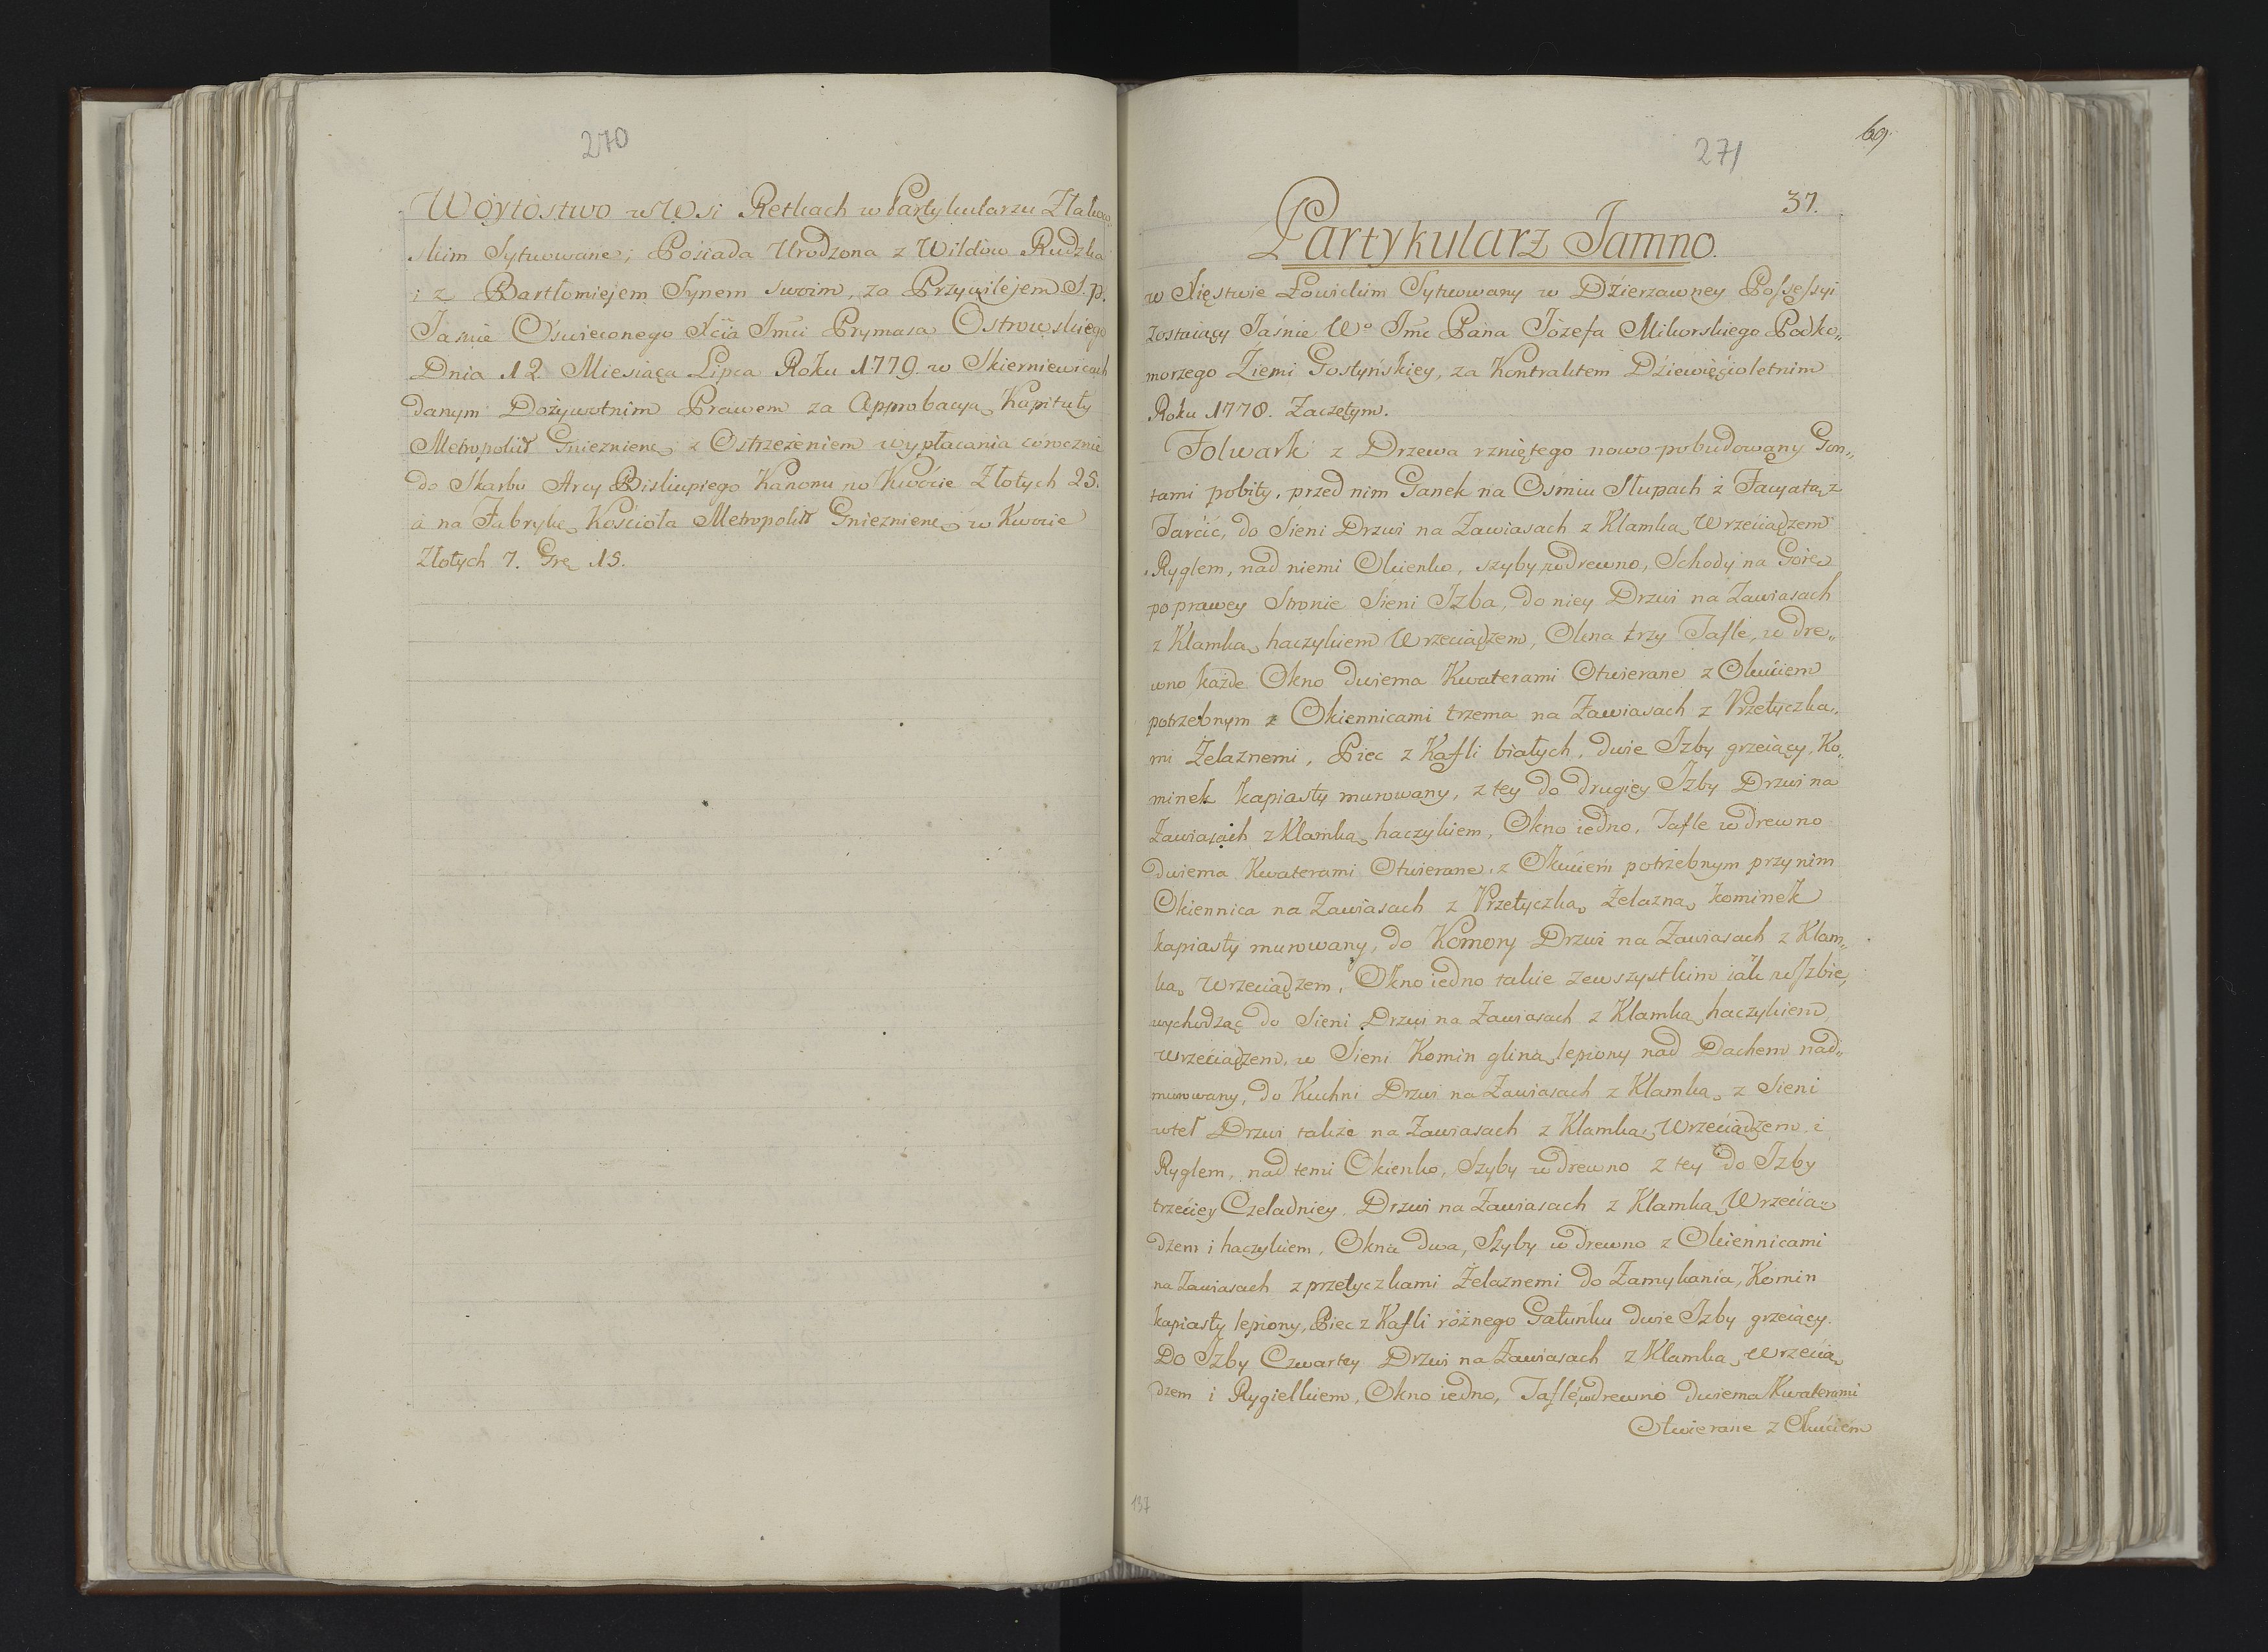 270
Woytostwo w Wsi Retkach w Partykularzu Złakow
skim Sytuowane; Posiada Urodzona z Wildów Rudzka
i z Bartłomiejem Synem swoim, za Przywilejem S. p.
Jasnie Oświeconego Xcia Jmci Prymasa Ostrowskiego
Dnia 12 Miesiąca Lipca Roku 1779. w Skierniewicach
danym Dożywotnim Prawem za Approbacyą Kapituły
Metropolit Gnieznienę z Ostrzeżeniem wypłacania corocznie
do Skarbu Arcy Biskupiego Kanonu w Kwocie Złotych 25.
a na Fabrykę Kościoła Metropolit Gnieznienę w Kwocie
Złotych 7. Gr. 15.
271
69
37.
Partykularz Jamno.
w Xięstwie Łowickim Sytuowany w Dzierzawney Possessyi
zostaiący Jaśnie Wo Jmc Pana Józefa Mikorskiego Podko„
morzego Ziemi Gostyńskiey, za Kontraktem Dziewięćioletnim
Roku 1778. Zaczętym.
Folwark z Drzewa rzniętego nowo pobudowany Gon„
tami pobity, przed nim Ganek na Osmiu Słupach z Facyatą z
Tarcic, do Sieni Drzwi na Zawiasach z Klamką Wrzeciądzem
Ryglem, nad niemi Okienko, szyby w drewno, Schody na Górę
po prawey Stronie Sieni Izba, do niey Drzwi na Zawiasach
z Klamką haczykiem Wrzeciądzem, Okna trzy Tafle, w dre„
wno każde Okno dwiema Kwaterami Otwierane z Okuciem
potrzebnym z Okiennicami trzema na Zawiasach z Przetyczka„
mi Żelaznemi, Piec z Kafli białych, dwie Izby grzeiący, Ko„
minek kapiasty murowany, z tey do drugiey Izby Drzwi na
Zawiasach z Klamką haczykiem, Okno iedno, Tafle w drewno
dwiema Kwaterami Otwierane, z Okuciem potrzebnym przy nim
Okiennica na Zawiasach z Przetyczką Żelazną kominek
kapiasty murowany, do Komory Drzwi na Zawiasach z Klam„
ką Wrzeciądzem, Okno iedno takie ze wszystkim iak w Izbie,
wychodząc do Sieni Drzwi na Zawiasach z Klamką haczykiem,
wrzeciądzem, w Sieni Komin gliną lepiony nad Dachem nad„
murowany, do Kuchni Drzwi na Zawiasach z Klamką z Sieni
wteł Drzwi także na Zawiasach z Klamką Wrzeciądzem i
Ryglem, nad temi Okienko, Szyby w drewno z tey do Izby
trzeciey Czeladniey Drzwi na Zawiasach z Klamką Wrzecią„
dzem i haczykiem, Okna dwa, Szyby w drewno z Okiennicami
na Zawiasach z przetyczkami Żelaznemi do Zamykania, Komin
kapiasty lepiony, Piec z Kafli różnego Gatunku dwie Izby grzeiący.
Do Izby Czwartey Drzwi na Zawiasach z Klamką Wrzecią
dzem i Rygielkiem, Okno iedno, Tafle w drewno dwiema Kwaterami
Otwierane z Okuciem
137